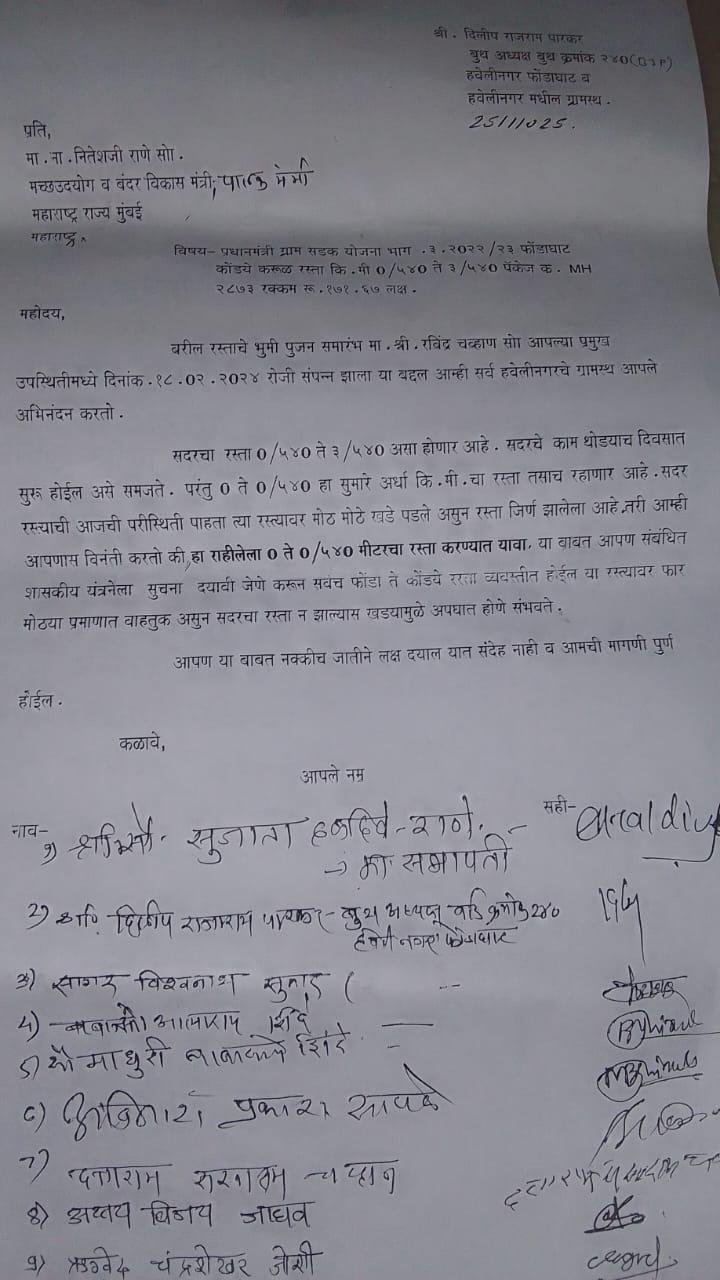 श्री . दिलीप राजाराम पारकर
बुथ अध्यक्ष बुथ क्रमांक २४०(BJP)
हवेलीनगर फोंडाघाट व
हवेलीनगर मधील ग्रामस्थ .
25/11/025.
प्रति,
मा .ना .नितेशजी राणे सोा .
मच्छउदयोग व बंदर विकास मंत्री, पालक मंत्री
महाराष्ट्र राज्य मुंबई
महाराष्ट्र.
विषय- प्रधानमंत्री ग्राम सडक योजना भाग .३.२०२२/२३ फोंडाघाट
कोंडये करूळ रस्ता कि .मी ०/५४० ते ३/५४० पॅकेज क. MH
२८७३ रक्कम रू .१७१ .६७ लक्ष .
महोदय,
वरील रस्ताचे भुमी पुजन समारंभ मा .श्री .रविंद्र चव्हाण सोा आपल्या प्रमुख
उपस्थितीमध्ये दिनांक .१८.०२ .२०२४ रोजी संपन्न झाला या बद्दल आम्ही सर्व हवेलीनगरचे ग्रामस्थ आपले
अभिनंदन करतो .
सदरचा रस्ता ०/५४० ते ३/५४० असा होणार आहे . सदरचे काम थोडयाच दिवसात
सुरू होईल असे समजते . परंतु ० ते ०/५४० हा सुमारे अर्धा कि .मी .चा रस्ता तसाच रहाणार आहे .सदर
रस्त्याची आजची परीस्थिती पाहता त्या रस्त्यावर मोठ मोठे खडे पडले असुन रस्ता जिर्ण झालेला आहे.तरी आम्ही
आपणास विनंती करतो की,हा राहीलेला ० ते ०/५४० मीटरचा रस्ता करण्यात यावा. या बाबत आपण संबंधित
शासकीय यंत्रनेला सुचना दयावी जेणे करून सवच फोंडा ते कोंडये रस्ता व्यवस्तीत होईल या रस्त्यावर फार
मोठया प्रमाणात वाहतुक असुन सदरचा रस्ता न झाल्यास खडयामुळे अपघात होणे संभवते .
आपण या बाबत नक्कीच जातीने लक्ष दयाल यात संदेह नाही व आमची मागणी पुर्ण
होईल .
कळावे,
आपले नम्र
नाव- सही-
१) सौ. सुजाता हळदिवे - राणे.
→ मा. सभापती
२) श्री. दिलीप राजाराम पारकर - बुथ अध्यक्ष २४०
हवेली नगर फोंडाघाट
३) सागर विश्वनाथ सुतार
4) आत्माराम शिंदे
5) सौ माधुरी शिंदे
६) प्रकाश सापळे
7) दत्ताराम चव्हाण
8) अक्षय विजय जाधव
9) ऋग्वेद चंद्रशेखर जोशी